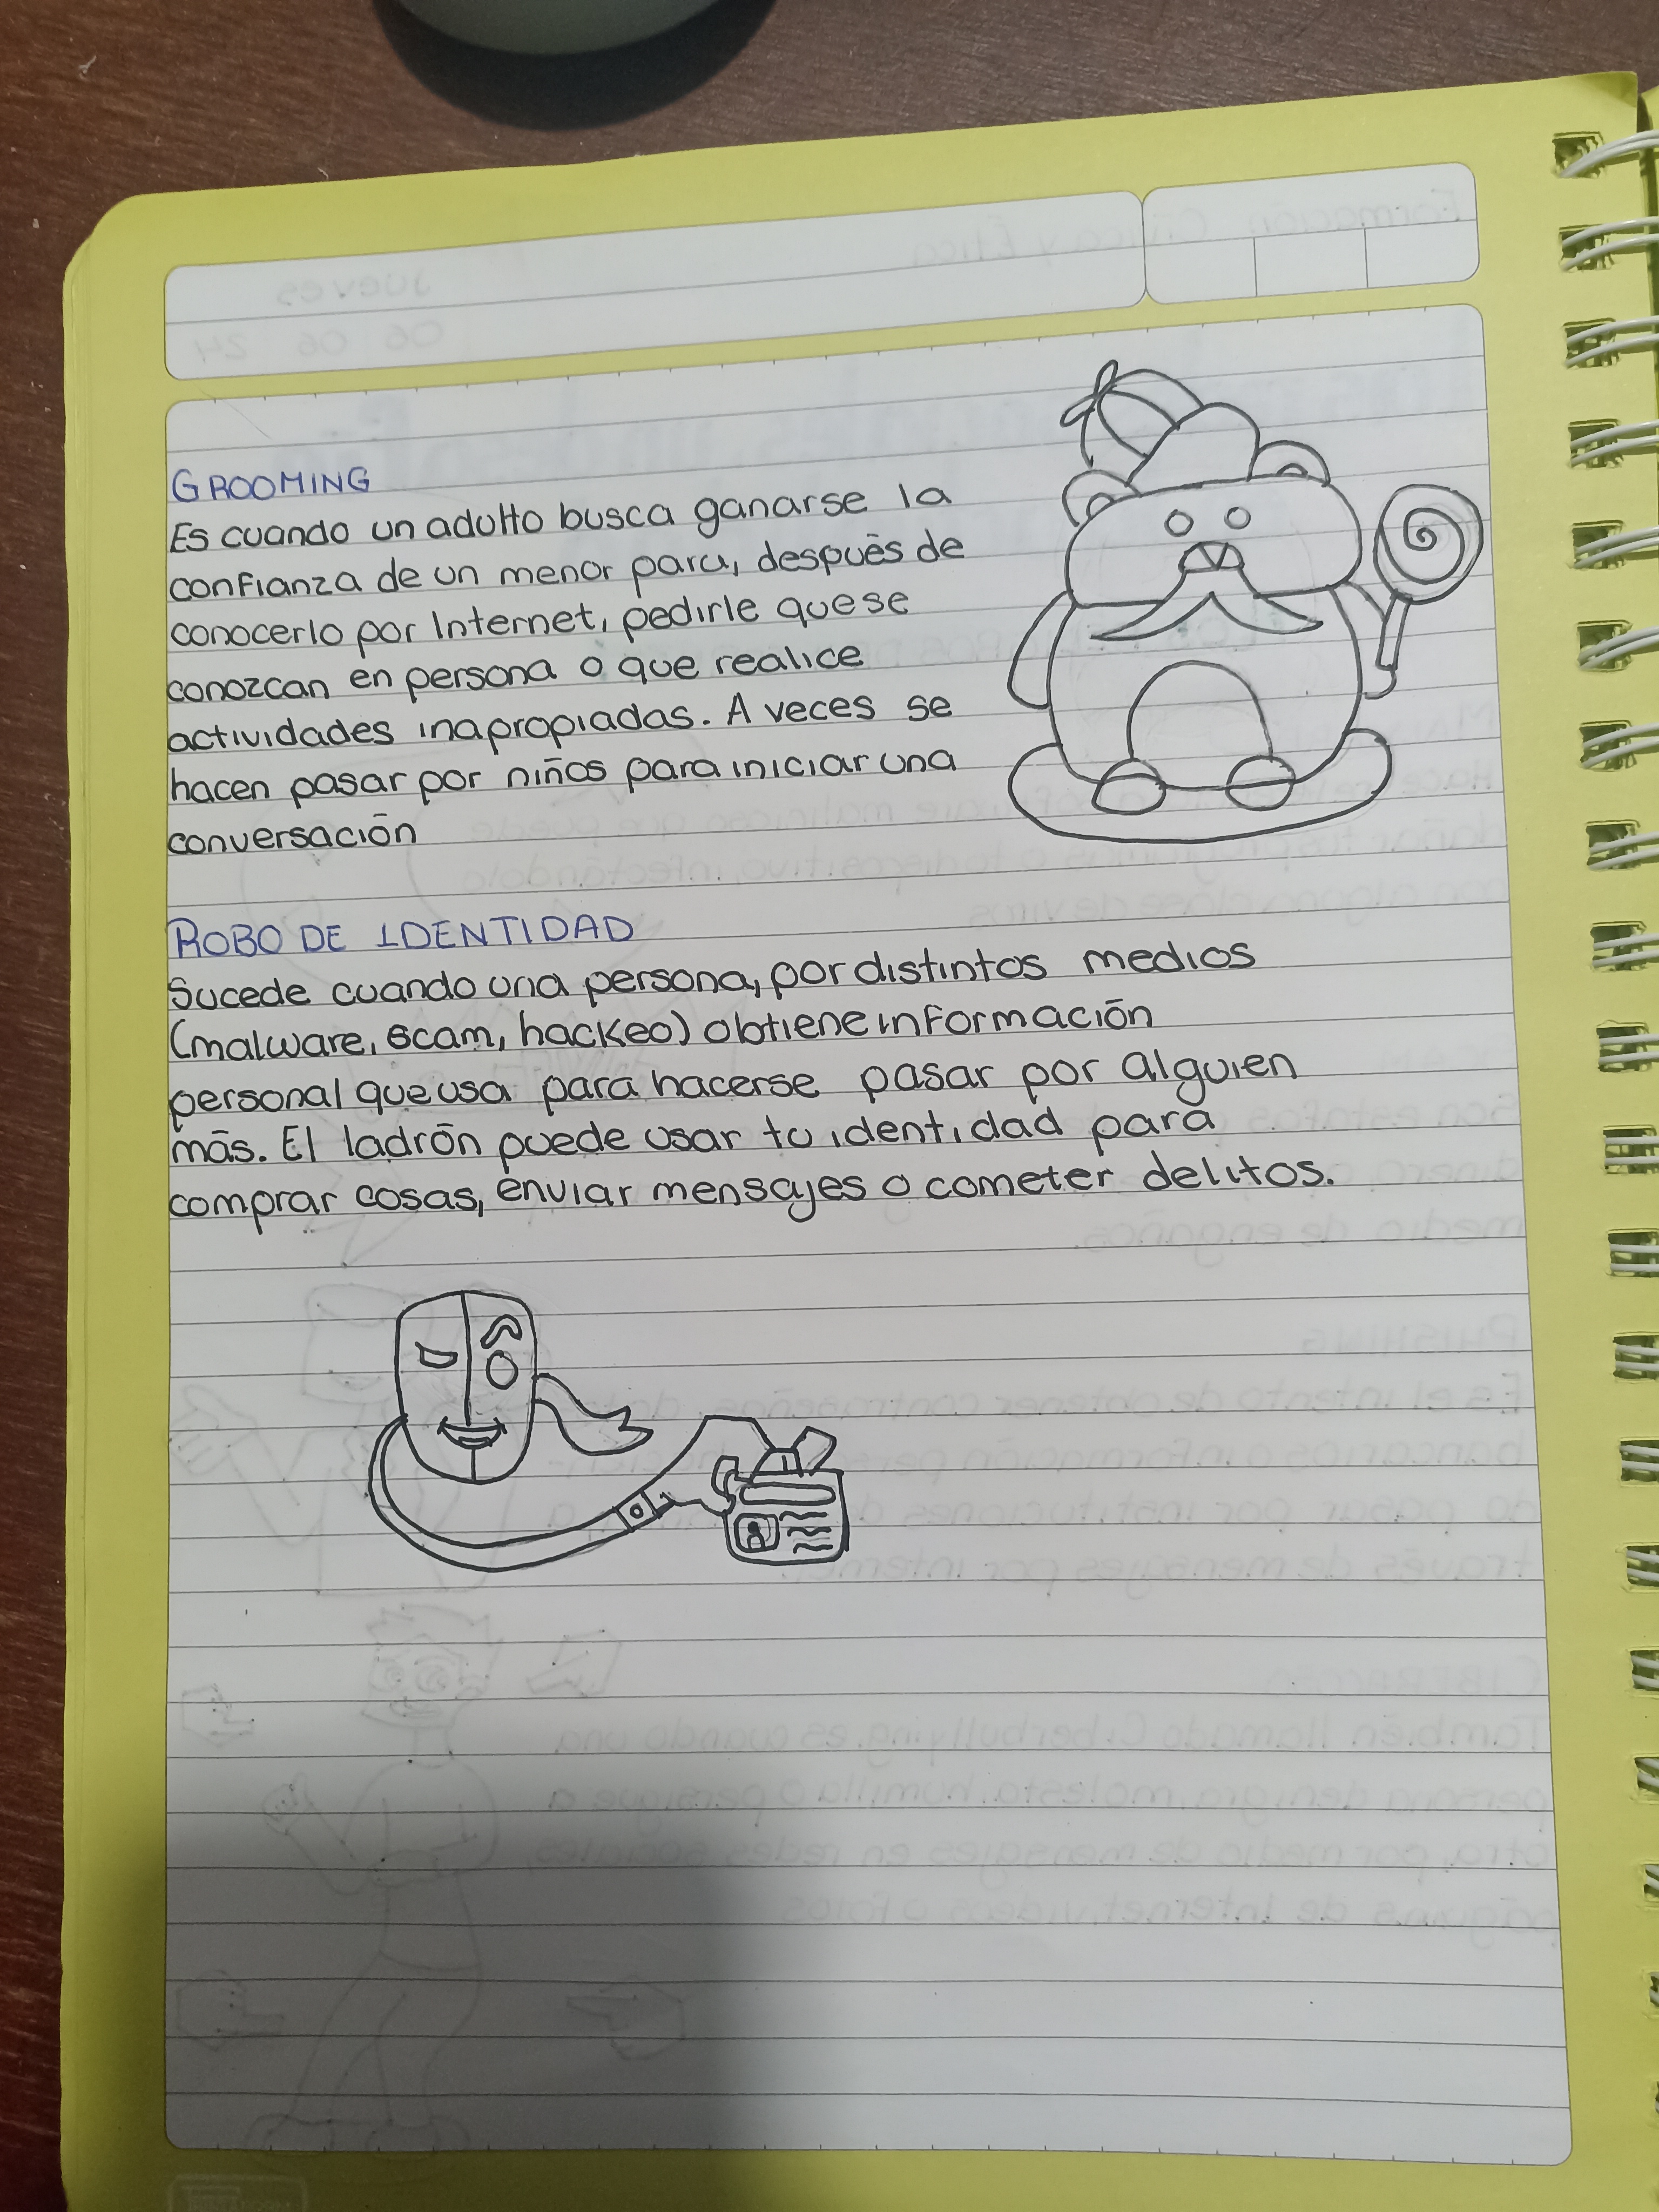 GROOMING
Es cuando un adulto busca ganarse la
confianza de un menor para, después de
conocerlo por Internet, pedirle que se
conozcan en persona o que realice
actividades inapropiadas. A veces se
hacen pasar por niños para iniciar una
conversación
ROBO DE IDENTIDAD
Sucede cuando una persona, por distintos medios
(malware, scam, hackeo) obtiene información
personal que usa para hacerse pasar por alguien
más. El ladrón puede usar tu identidad para
comprar cosas, enviar mensajes o cometer delitos.